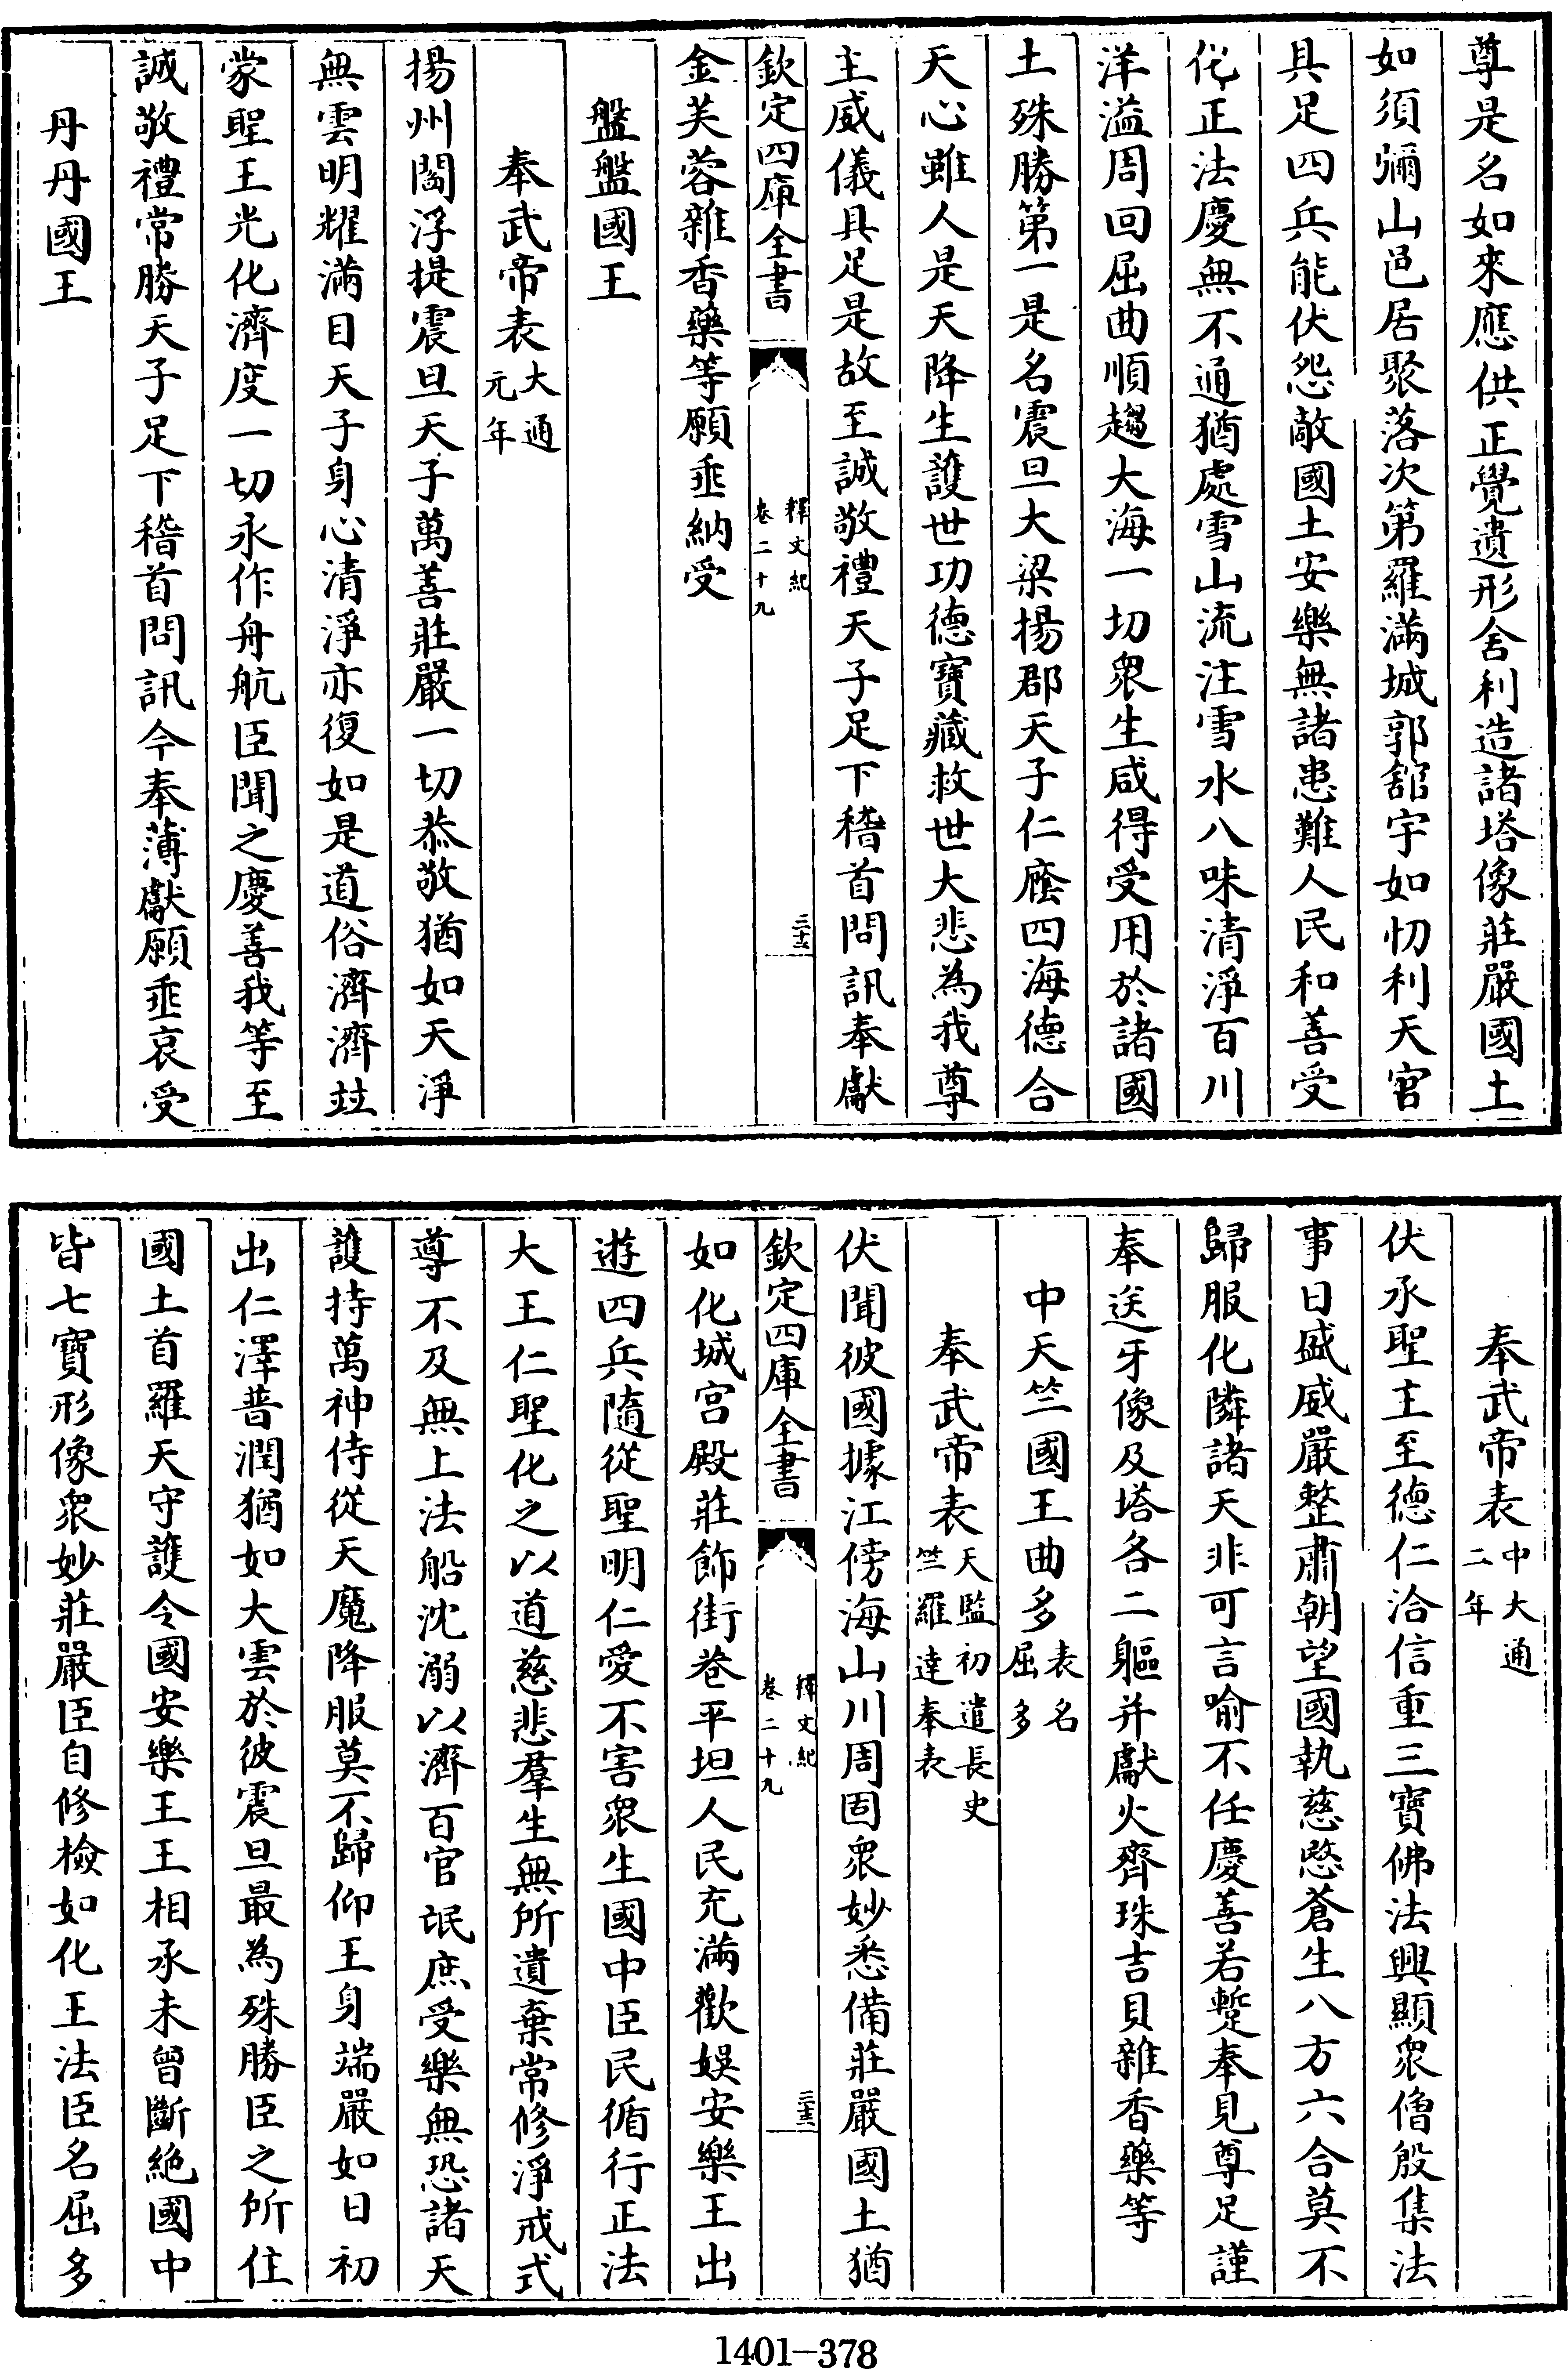 尊是名如來應供正覺遺形舍利造諸塔像莊嚴國土
如須彌山邑居聚落次第羅滿城郭舘宇如忉利天宮
具足四兵能伏怨敵國土安樂無諸患難人民和善受
化正法慶無不通猶處雪山流注雪水八味清淨百川
洋溢周回屈曲順趨大海一切衆生咸得受用於諸國
土殊勝第一是名震旦大梁揚郡天子仁廕四海德合
天心雖人是天降生護世功德寶藏救世大悲為我尊
主威儀具足是故至誠敬禮天子足下稽首問訊奉獻
欽定四庫全書
釋文紀
卷二十九
三十六
金芙蓉雜香藥等願垂納受
盤盤國王
奉武帝表大通
元年
揚州閻浮提震旦天子萬善莊嚴一切恭敬猶如天淨
無雲明耀滿目天子身心清淨亦復如是道俗濟濟竝
蒙聖王光化濟度一切永作舟航臣聞之慶善我等至
誠敬禮常勝天子足下稽首問訊今奉薄獻願垂哀受
丹丹國王
奉武帝表中大通
二年
伏承聖主至德仁洽信重三寶佛法興顯衆僧殷集法
事日盛威嚴整肅朝望國執慈愍蒼生八方六合莫不
歸服化隣諸天非可言喻不任慶善若蹔奉見尊足謹
奉送牙像及塔各二軀并獻火齊珠吉貝雜香藥等
中天竺國王曲多表名
屈多
奉武帝表天監初遣長史
竺羅達奉表
伏聞彼國據江傍海山川周固衆妙悉備莊嚴國土猶
欽定四庫全書
釋文紀
卷二十九
如化城宫殿莊飾街巷平坦人民充滿歡娛安樂王出
遊四兵隨從聖明仁愛不害衆生國中臣民循行正法
大王仁聖化之以道慈悲羣生無所遺棄常修淨戒式
導不及無上法船沈溺以濟百官氓庶受樂無恐諸天
護持萬神侍從天魔降服莫不歸仰王身端嚴如日初
出仁澤普潤猶如大雲於彼震旦最為殊勝臣之所住
國土首羅天守護令國安樂王王相承未曾斷絶國中
皆七寶形像衆妙莊嚴臣自修檢如化王法臣名屈多
1401—378